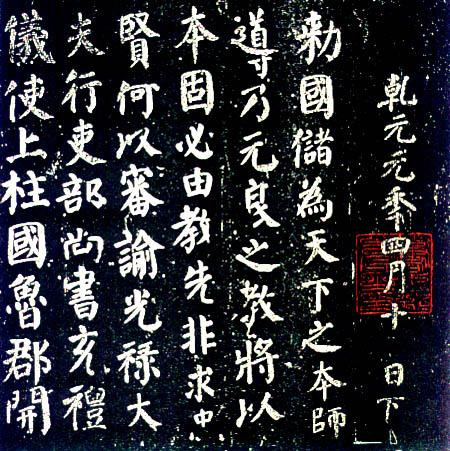 乹元元秊四月十日下
勑國儲為天下之本師
導乃元良之教將以
本固必由教先非求忠
賢何以審諭光祿大
夫行吏部尚書充禮
儀使上柱國魯郡開